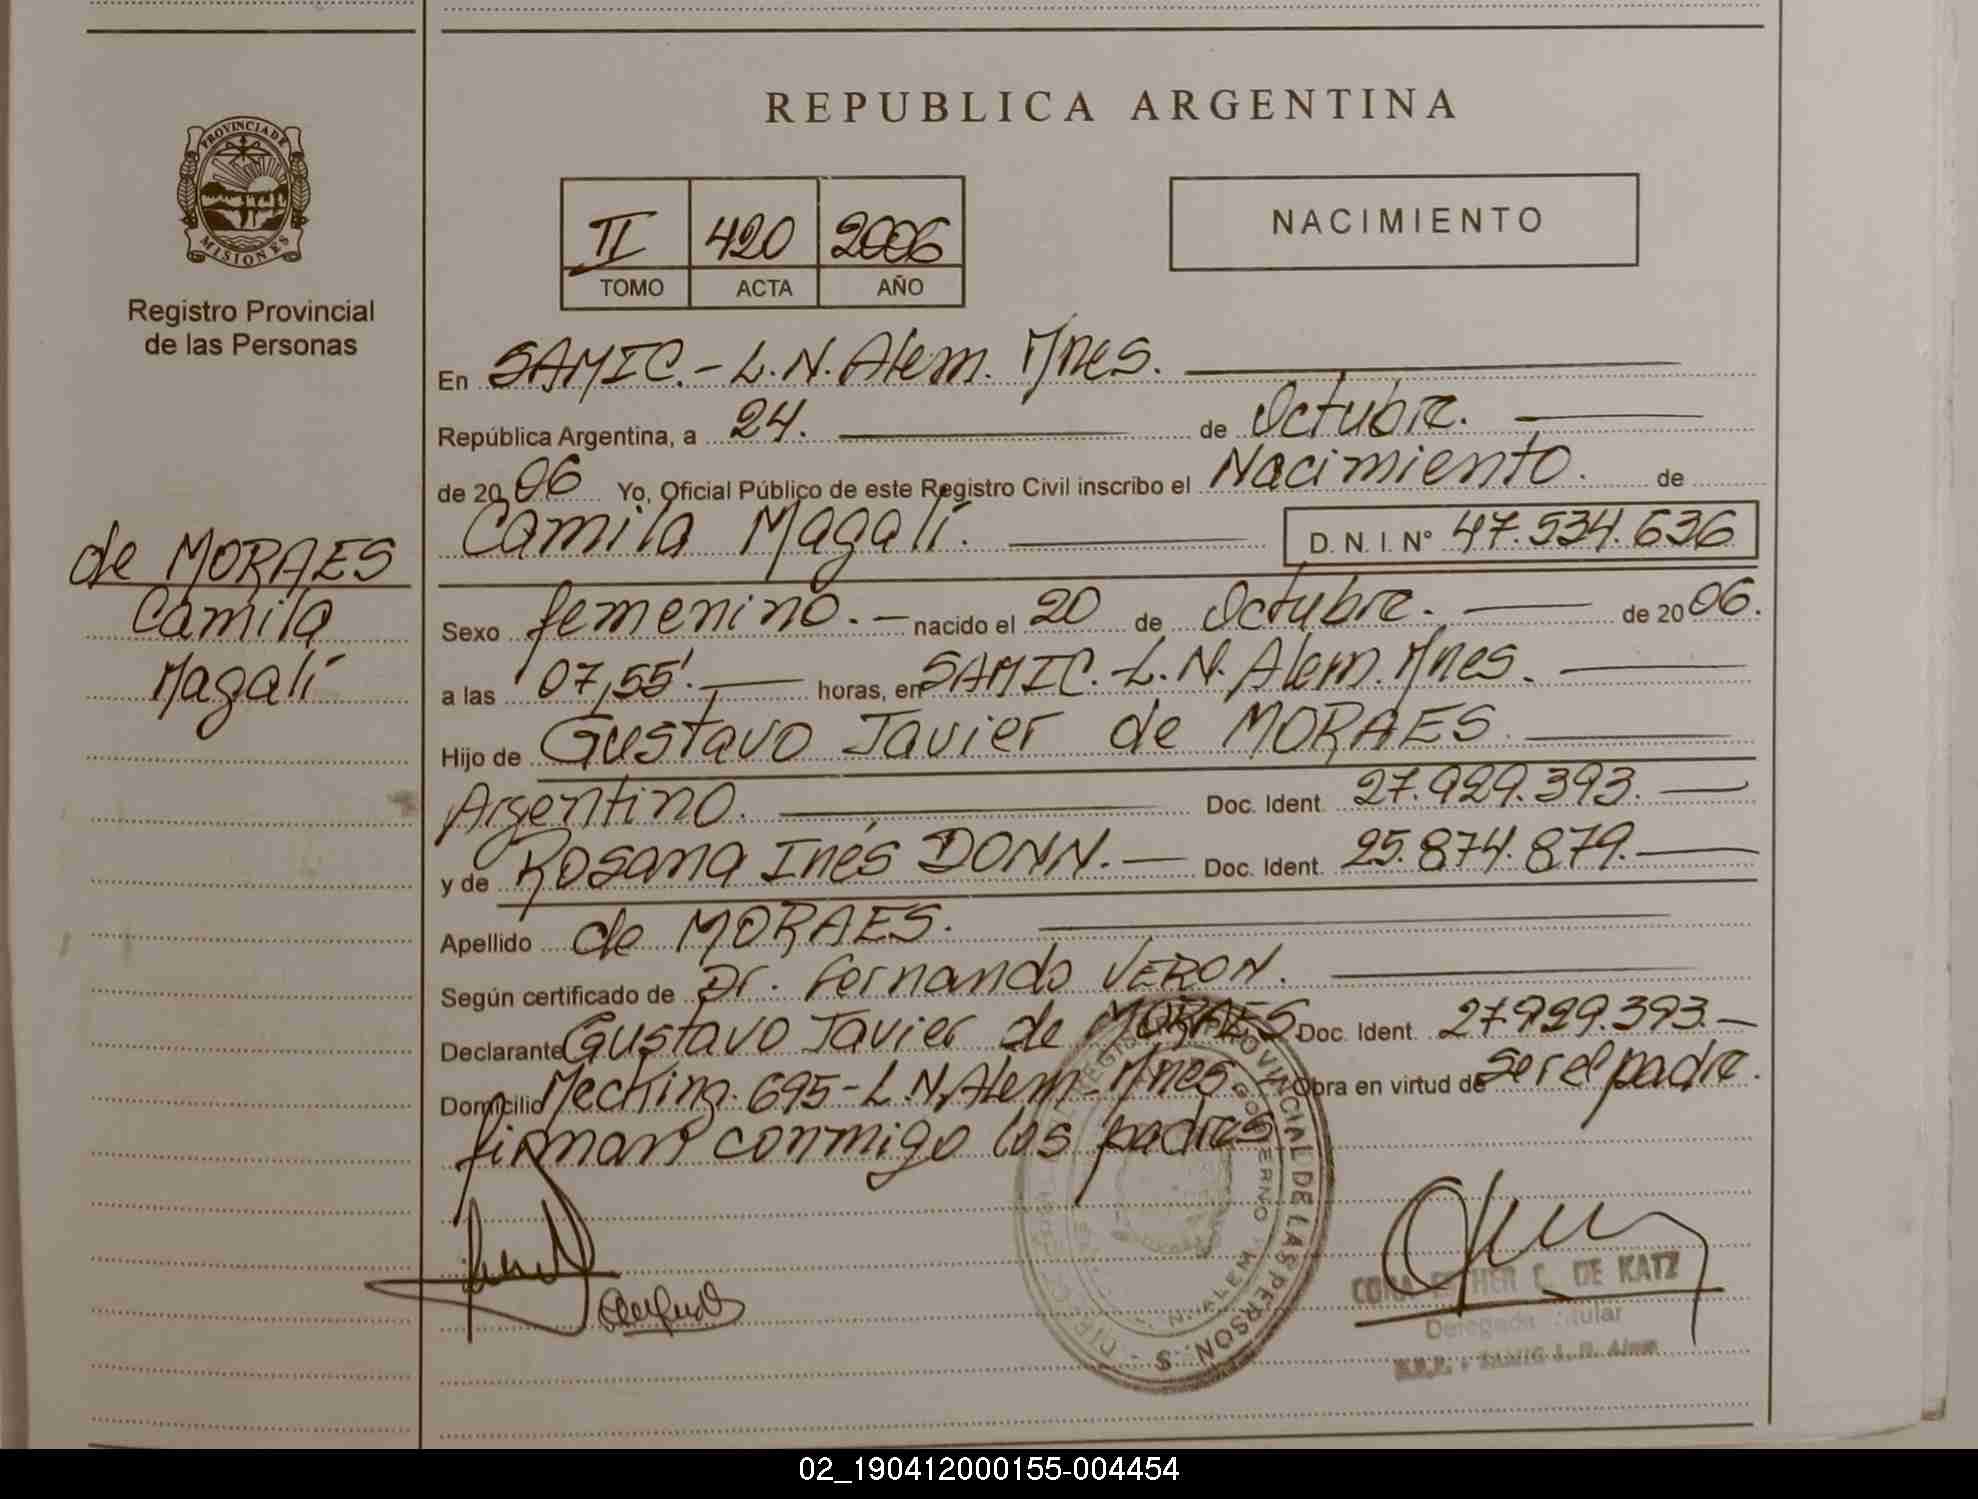 REPUBLICA ARGENTINA
PROVINCIA DE
MISIONES
Registro Provincial
de las Personas
II 420 2006
TOMO ACTA AÑO
NACIMIENTO
En SAMIC.- L.N. Alem. Mnes.
República Argentina, a 24. de Octubre.
de 2006 Yo, Oficial Público de este Registro Civil inscribo el Nacimiento. de
Camila Magalí. D. N. I. N° 47.534.636
de MORAES
Camila
Magalí
Sexo femenino.- nacido el 20 de Octubre. de 2006.
a las 07,55'. horas, en SAMIC.-L.N. Alem. Mnes.
Hijo de Gustavo Javier de MORAES
Argentino. Doc. Ident. 27.929.393.
y de Rosana Inés DONN. Doc. Ident. 25.874.879.
Apellido de MORAES.
Según certificado de Dr. Fernando VERON.
Declarante Gustavo Javier de MORAES Doc. Ident. 27.929.393.
Domicilio 695-L.N.Alem-Mnes. Obra en virtud de ser el padre.
firman conmigo los padres
PROVINCIAL DE LAS PERSONAS
GOBIERNO
N. ALEM
ESTHER C. DE KATZ
Delegada Titular
SAMIC L. N. Alem
02_190412000155-004454